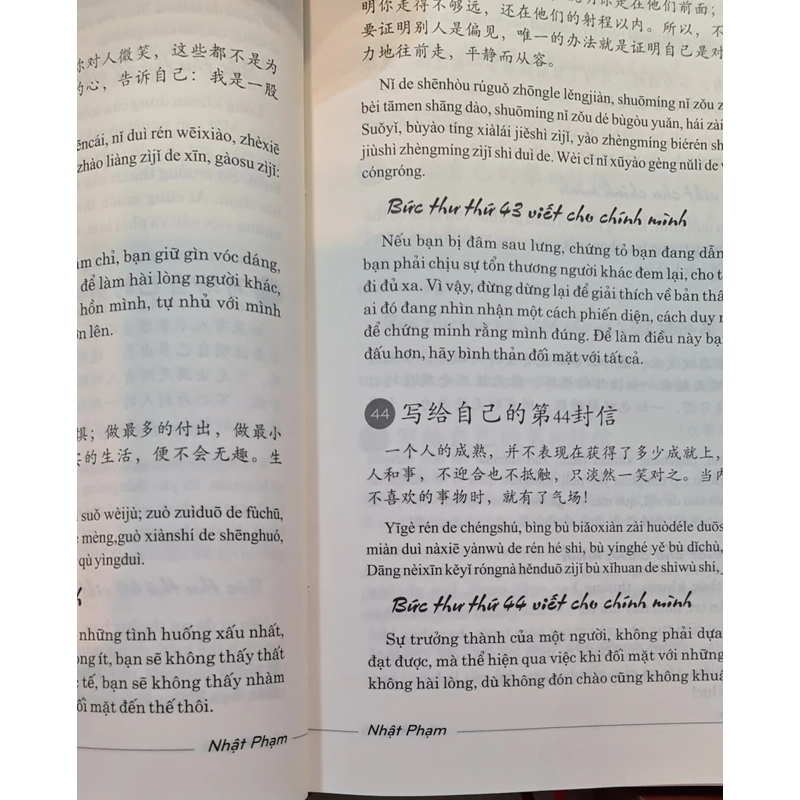 你对人微笑，这些都不是为
的心，告诉自己：我是一股
duì rén wēixiào, zhèxiē
zhào liàng zìjǐ de xīn, gàosu zìjǐ:
chỉ, bạn giữ gìn vóc dáng,
để làm hài lòng người khác,
hồn mình, tự nhủ với mình
lên.
惧；做最多的付出，做最小
的生活，便不会无趣。生
suǒ wèijù; zuò zuìduō de fùchū,
mèng,guò xiànshí de shēnghuó,
qù yìngduì.
những tình huống xấu nhất,
ít, bạn sẽ không thấy thất
tế, bạn sẽ không thấy nhàm
mặt đến thế thôi.
Nhật Phạm
明你走得不够远，还在他们的射程以内。所以，不
要证明别人是偏见，唯一的办法就是证明自己是对
力地往前走，平静而从容。
Nǐ de shēnhòu rúguǒ zhōngle lěngjiàn, shuōmíng nǐ zǒu z
bèi tāmen shāng dào, shuōmíng nǐ zǒu dé bùgòu yuǎn, hái zài
Suǒyǐ, bùyào tíng xiàlái jiěshì zìjǐ, yào zhèngmíng biérén sh
jiùshì zhèngmíng zìjǐ shì duì de. Wèi cǐ nǐ xūyào gèng nǔlì de v
cóngróng.
Bức thư thứ 43 viết cho chính mình
Nếu bạn bị đâm sau lưng, chứng tỏ bạn đang dẫn
bạn phải chịu sự tổn thương người khác đem lại, cho t
đi đủ xa. Vì vậy, đừng dừng lại để giải thích về bản thâ
ai đó đang nhìn nhận một cách phiến diện, cách duy n
để chứng minh rằng mình đúng. Để làm điều này bạ
đấu hơn, hãy bình thản đối mặt với tất cả.
44 写给自己的第44封信
一个人的成熟，并不表现在获得了多少成就上，
人和事，不迎合也不抵触，只淡然一笑对之。当内
不喜欢的事物时，就有了气场！
Yīgè rén de chéngshú, bìng bù biǎoxiàn zài huòdéle duōs
miàn duì nàxiē yànwù de rén hé shì, bù yínghé yě bù dǐchù,
Dāng nèixīn kěyǐ róngnà hěnduō zìjǐ bù xǐhuan de shìwù shí,
Bức thư thứ 44 viết cho chính mình
Sự trưởng thành của một người, không phải dựa
đạt được, mà thể hiện qua việc khi đối mặt với những
không hài lòng, dù không đón chào cũng không khuấ
Nhật Phạm